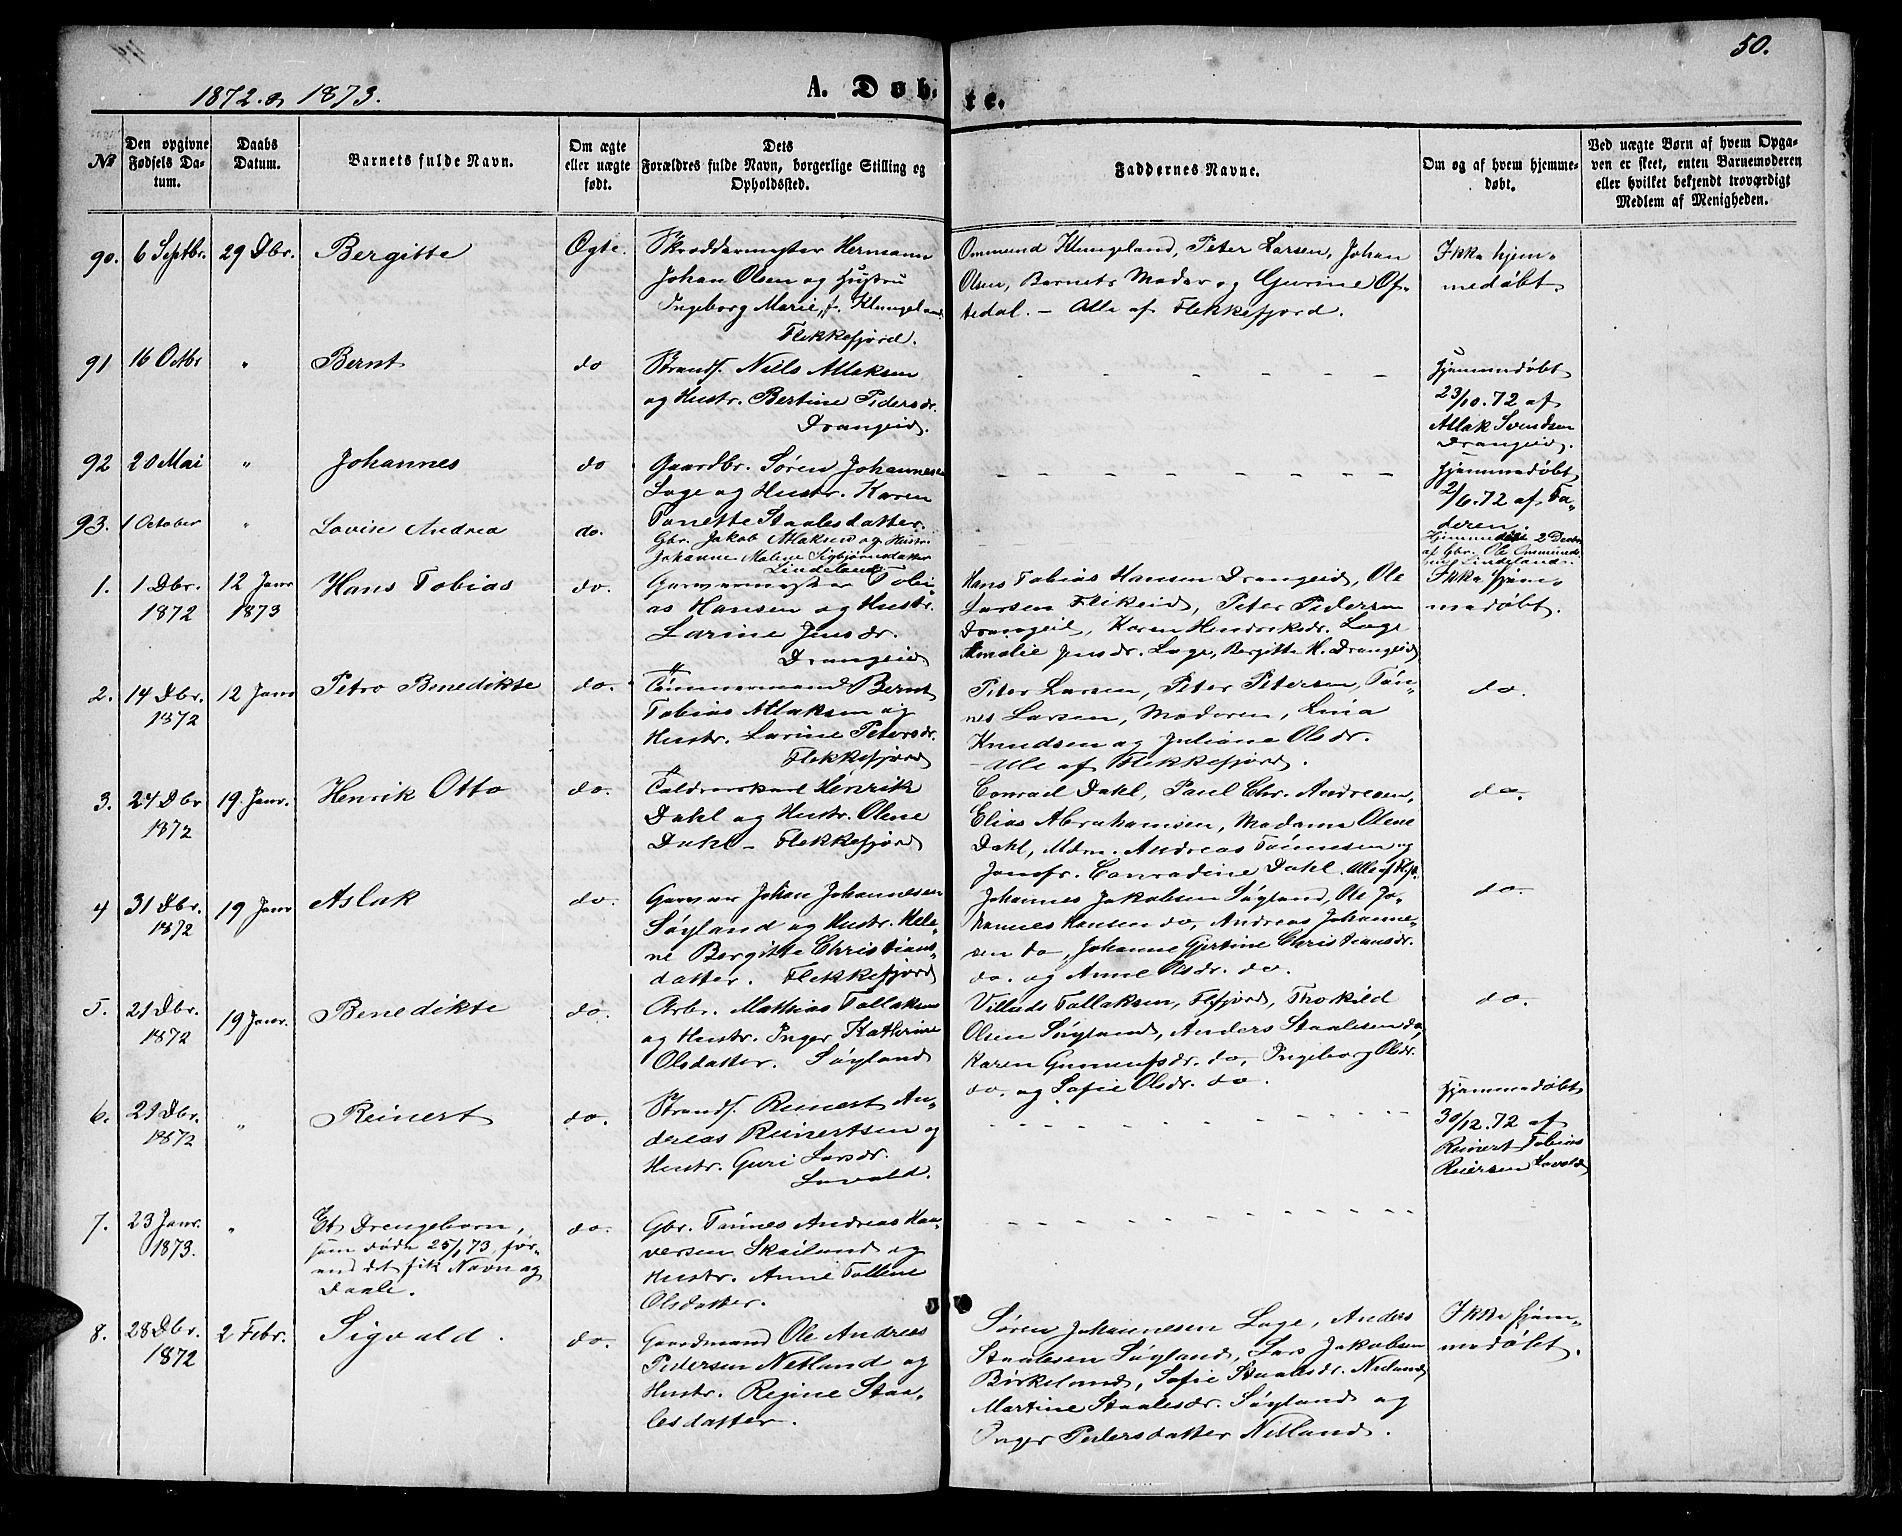 50.
1872. & 1873.
A. Døb-
te.
No
Den opgivne Fødsels Da-
tum.
Daabs
Datum.
Barnets fulde Navn.
Om ægte
eller uægte
født.
Dets
Forældres fulde Navn, borgerlige Stilling og
Opholdssted.
Faddernes Navne.
Om og af hvem hjemme-
døbt.
Ved uægte Børn af hvem Opga-
ven er skeet, enten Barnemoderen
eller hvilket bekjendt troværdigt
Medlem af Menigheden.
90. 6 Septbr. 29 Dbr. Bergitte Ægte.
Skræddermester Hermann
Johan Olsen og Hustru
Ingeborg Marie, f. Klungeland
Flekkefjord.
Ommund Klungeland, Peter Larsen, Johan
Olsen, Barnets Moder og Gurine Of-
tedal. - Alle af Flekkefjord.
Ikke hjem-
medøbt.
91 16 Octbr " Bernt do
Strands. Niels Atlaksen
og Hustr. Bertine Pedersdr.
Drangeid.
Hjemmedøbt
23/10.72 af
Atlak Svendsen
Drangeid.
92 20 Mai " Johannes do
Gaardbr. Søren Johannesen
Loge og Hustr. Karen
Tonette Staalesdatter.
Hjemmedøbt
2/6.72 af Fa-
deren.
93. 1 October " Lovise Andrea do.
Gbr. Jakob Atlaksen og Hustr.
Johanne Malene Sigbjørnsdatter
Lindeland
Hjemmedøbt 2 Decbr
af Gbr. Ole Ommunds-
sen Lindeland.
1. 1 Dbr.
1872
12 Janr
1873
Hans Tobias do.
Garvermester Tobi-
as Hansen og Hustr.
Larine Jensdr.
Drangeid
Hans Tobias Hansen Drangeid, Ole
Larsen Flikeid, Peter Pedersen
Drangeid, Karen Hendriksdr. Loge
Amalie Jensdr. Loge, Bergitte H. Drangeid
Ikke hjem-
medøbt.
2. 14 Dbr.
1872
12 Janr Petra Benedikte do.
Tømmermand Bernt
Tobias Atlaksen og
Hustr. Larine Petersdr.
Flekkefjord
Peter Larsen, Peter Petersen, Tøn-
nes Larsen, Moderen, Lina
Knudsen og Juliane Olsdr.
- Alle af Flekkefjord.
do.
3. 24 Dbr
1872
19. Janr. Henrik Otto do.
Toldroerskarl Henrik
Dahl og Hustr. Olene
Dahl - Flekkefjord
Conrad Dahl, Paul Chr. Andresen,
Elias Abrahamsen, Madame Olene
Dahl, Mdm. Andreas Tønnesen og
Jomfr. Conradine Dahl. Alle af Flfj.
do.
4 31 Dbr.
1872
19 Janr Aslak do.
Garver Johan Johannesen
Søyland og Hustr. Hele-
ne Bergitte Christians-
datter. Flekkefjord
Johannes Jakobsen Søyland, Ole Jo-
hannes Hansen do, Andreas Johanne-
sen do, Johanne Gjertine Christiansdr.
do. og Anne Olsdr. do.
do.
5. 21 Dbr.
1872
19 Janr. Benedikte do.
Arbr. Mathias Tollaksen
og Hustr. Inger Kathrine
Olsdatter. Søyland
Villads Tollaksen, Flfjord, Thorkild
Olsen Søyland, Anders Staalesen do,
Karen Gunnufsdr. do, Ingeborg Olsdr.
do. og Sofie Olsdr. do.
do.
6. 21 Dbr.
1872
" Reinert do.
Strands. Reinert An-
dreas Reinertsen og
Hustr. Guri Larsdr.
Lavold.
Hjemmedøbt
30/12.72 af
Reinert Tobias
Reiersen Lavold
7. 23 Janr.
1873.
" Et Drengebarn,
som døde 25/1 73 før-
end det fik Navn og
Daab.
do.
Gbr. Tønnes Andreas Haa-
versen Skailand og
Hustr. Anne Talline
Olsdatter.
8. 28 Dbr.
1872
2 Febr. Sigvald. do.
Gaardmand Ole Andreas
Pedersen Netland og
Hustr. Regine Staa-
lesdatter.
Søren Johannesen Loge, Anders
Staalesen Søyland, Lars Jakobsen
Birkeland, Sofie Staalesdr. Netland
Martine Staalesdr. Søyland og
Inger Pedersdatter Netland.
Ikke hjem-
medøbt.